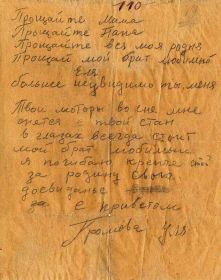 110
Прощайте Мама
Прощайте Папа
Прощайте вся моя родня
Прощай мой брат любимой
Еля
больше неувидиш ты меня
Твои моторы во сне мне
снятся твой стан
в глазах всегда стоит
мой брат любимый
я погибаю крепче стой
за родину свою
досвиданье
за с приветом
Громова Уля